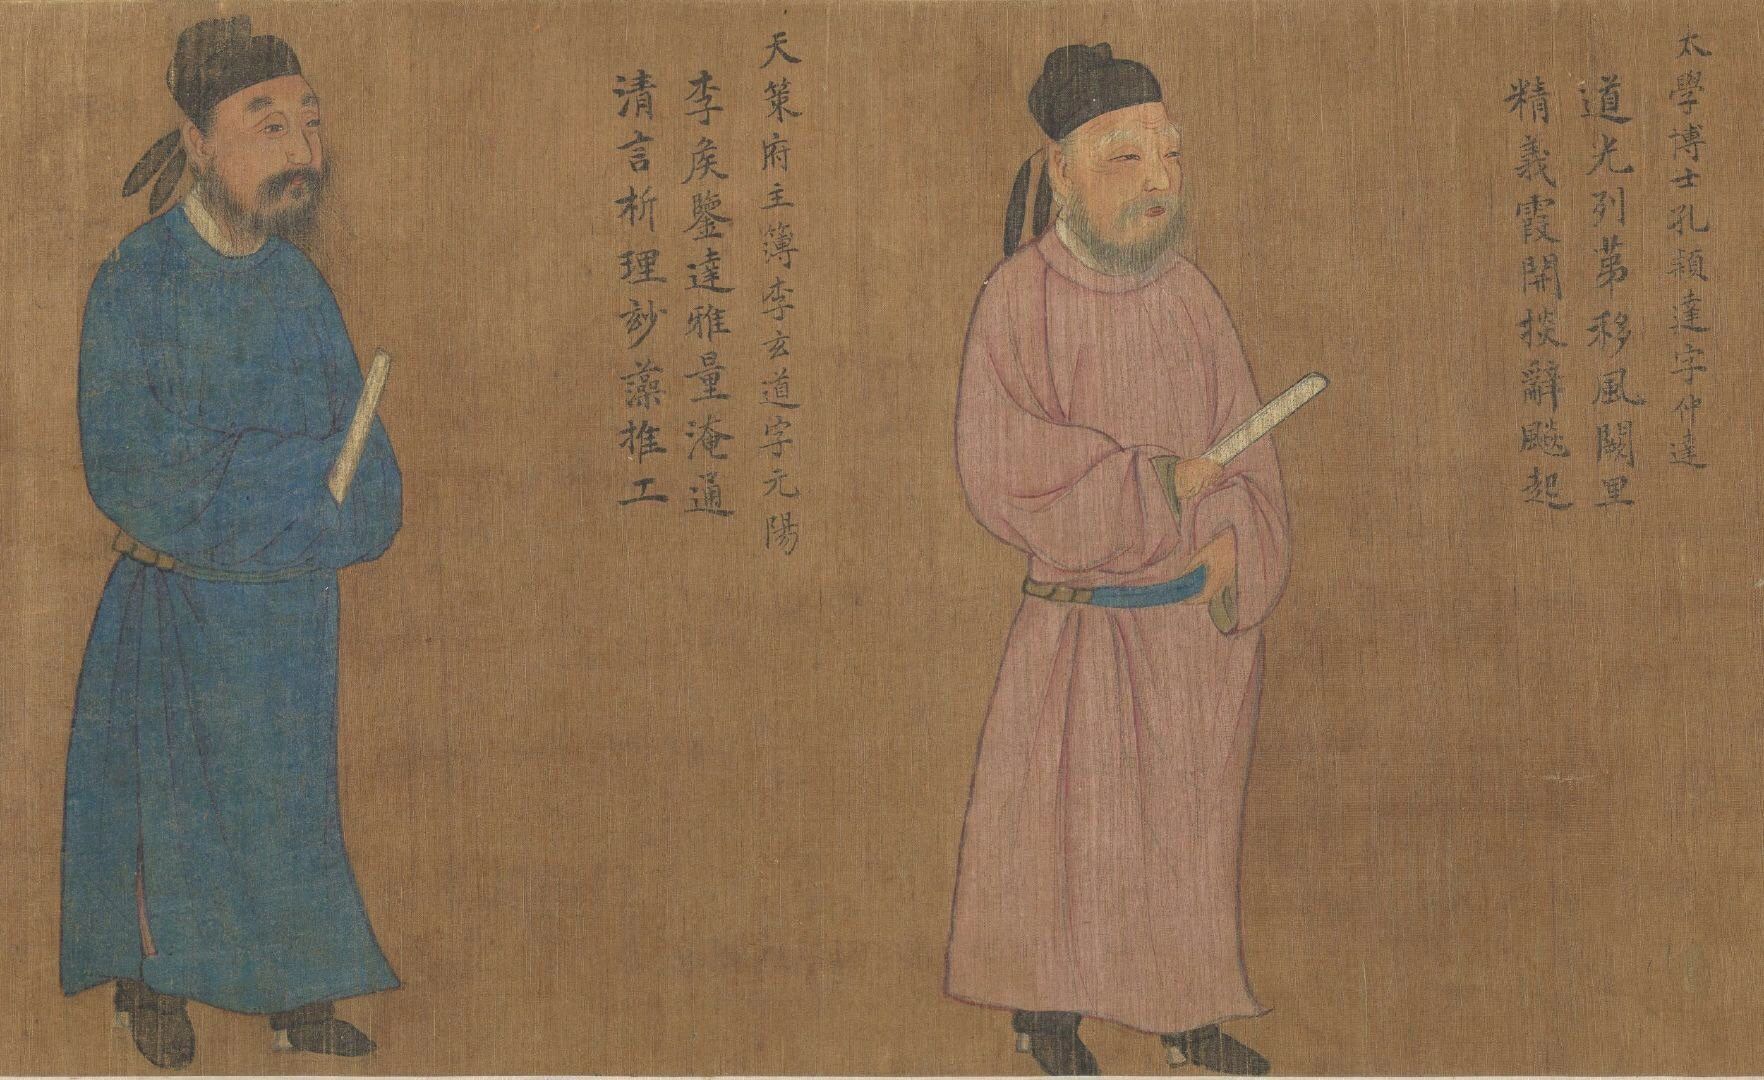 太學博士孔穎達字仲達
道光列第移風闕里
精義霞開掞辭飈起
天策府主簿李玄道字元陽
李矦鑒達雅量淹通
清言析理玅藻推工